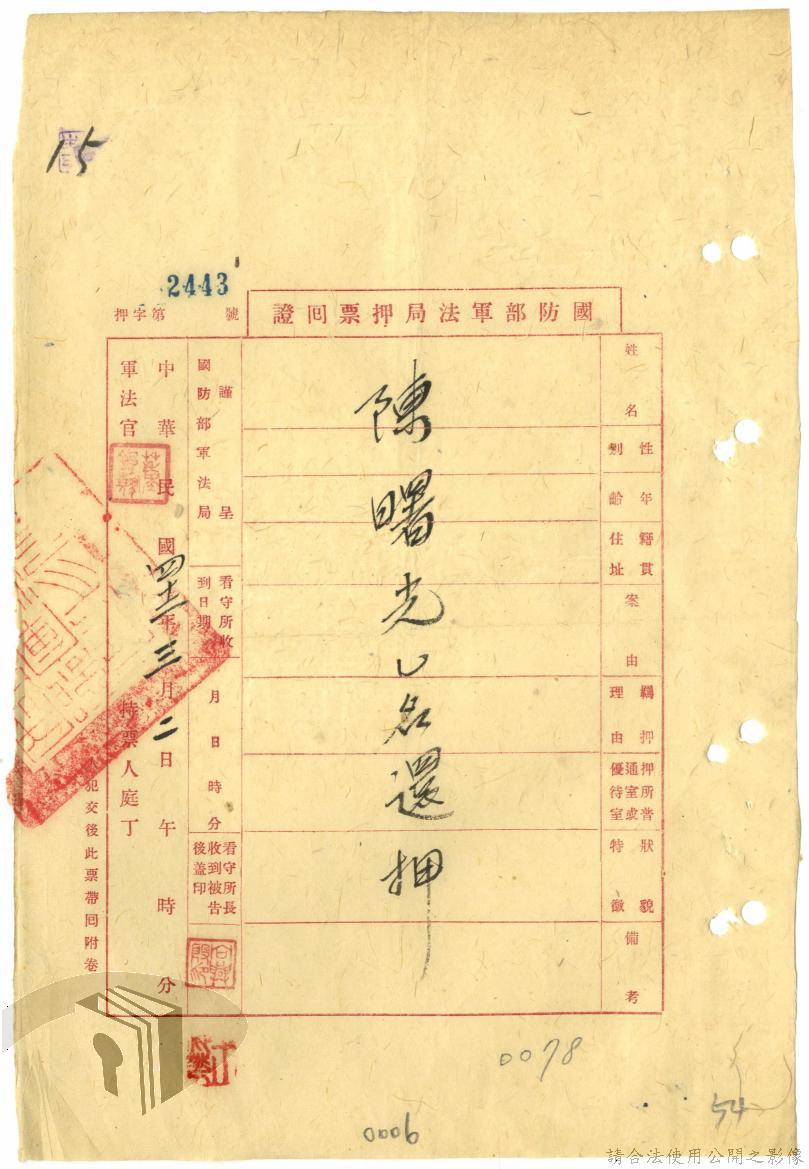 15
2443
押字第 號
國防部軍法局押票回證
姓名
性別
年齡
籍貫住址
案由
羈押理由
押所普通室或優待室
狀貌特徵
備考
陳曙光乙名還押
謹呈
國防部軍法局
看守所收到日期
月日時分
看守所長收到被告後蓋印
中華民國四十二年三月二日午時分
軍法官
持票人庭丁
犯交後此票帶回附卷
0078
54
0006
請合法使用公開之影像